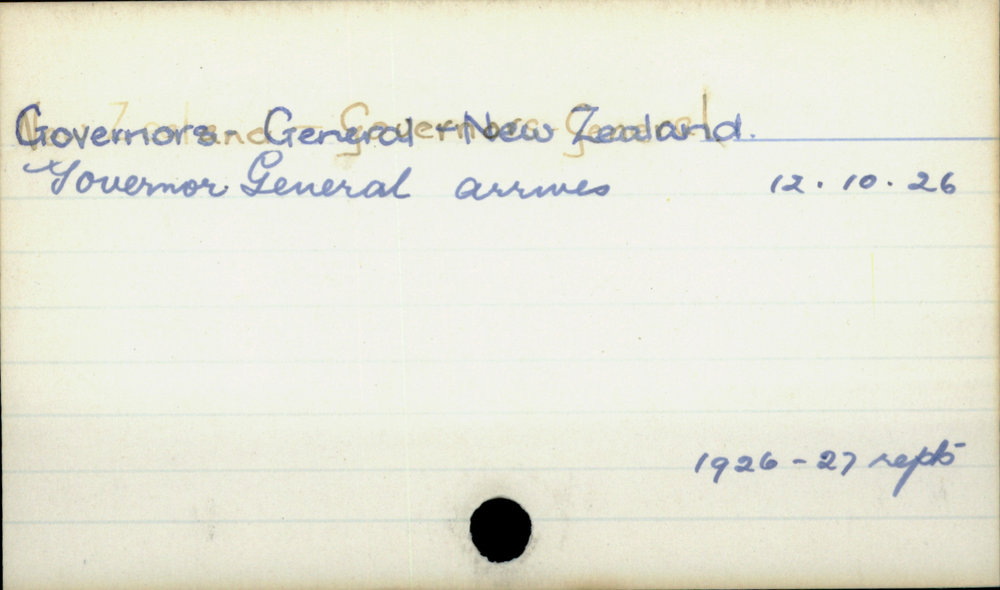 Governors - General - New Zealand.
Governor General arrives 12.10.26
1926-27 repts